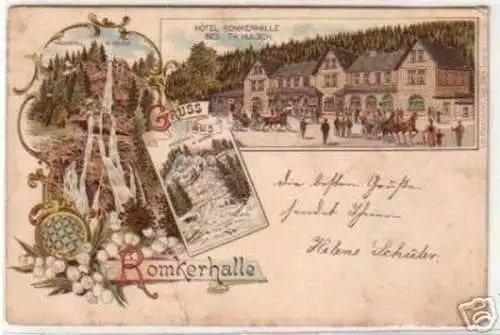 HÔTEL ROMKERHALLE
BES. TH. HULSCH
GRUSS
aus
Romkerhalle
Die besten Grüße
sendet Ihnen
Helene Schüler.